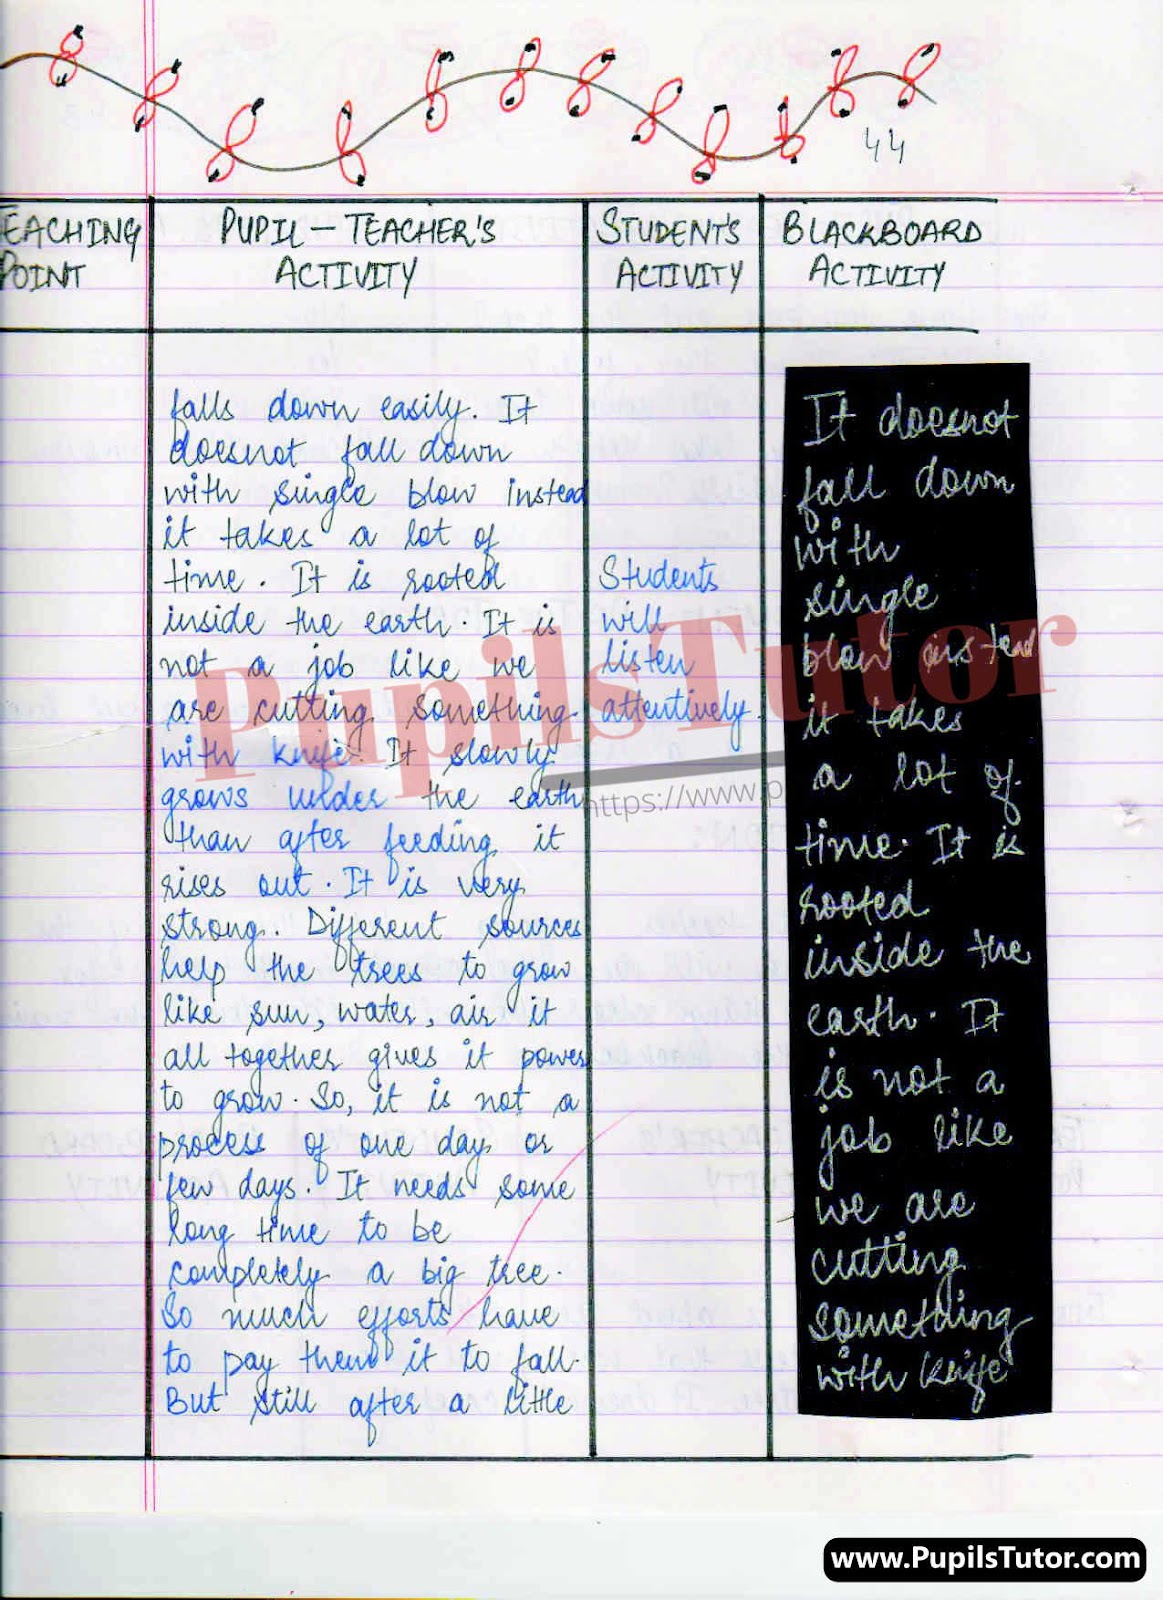 44
EACHING
POINT
PUPIL – TEACHER'S
ACTIVITY
STUDENTS
ACTIVITY
BLACKBOARD
ACTIVITY
falls down easily. It
doesnot fall down
with single blow instead
it takes a lot of
time. It is rooted
inside the earth. It is
not a job like we
are cutting something
with knife. It slowly
grows under the earth
than after feeding it
rises out. It is very
strong. Different sources
help the trees to grow
like sun, water, air it
all together gives it power
to grow. So, it is not a
process of one day or
few days. It needs some
long time to be
completely a big tree.
So much efforts have
to pay them it to fall.
But still after a little
Students
will
listen
attentively.
It doesnot
fall down
with
single
blow instead
it takes
a lot of
time. It is
rooted
inside the
earth. It
is not a
job like
we are
cutting
something
with knife
PupilsTutor
https://www.p
www.PupilsTutor.com